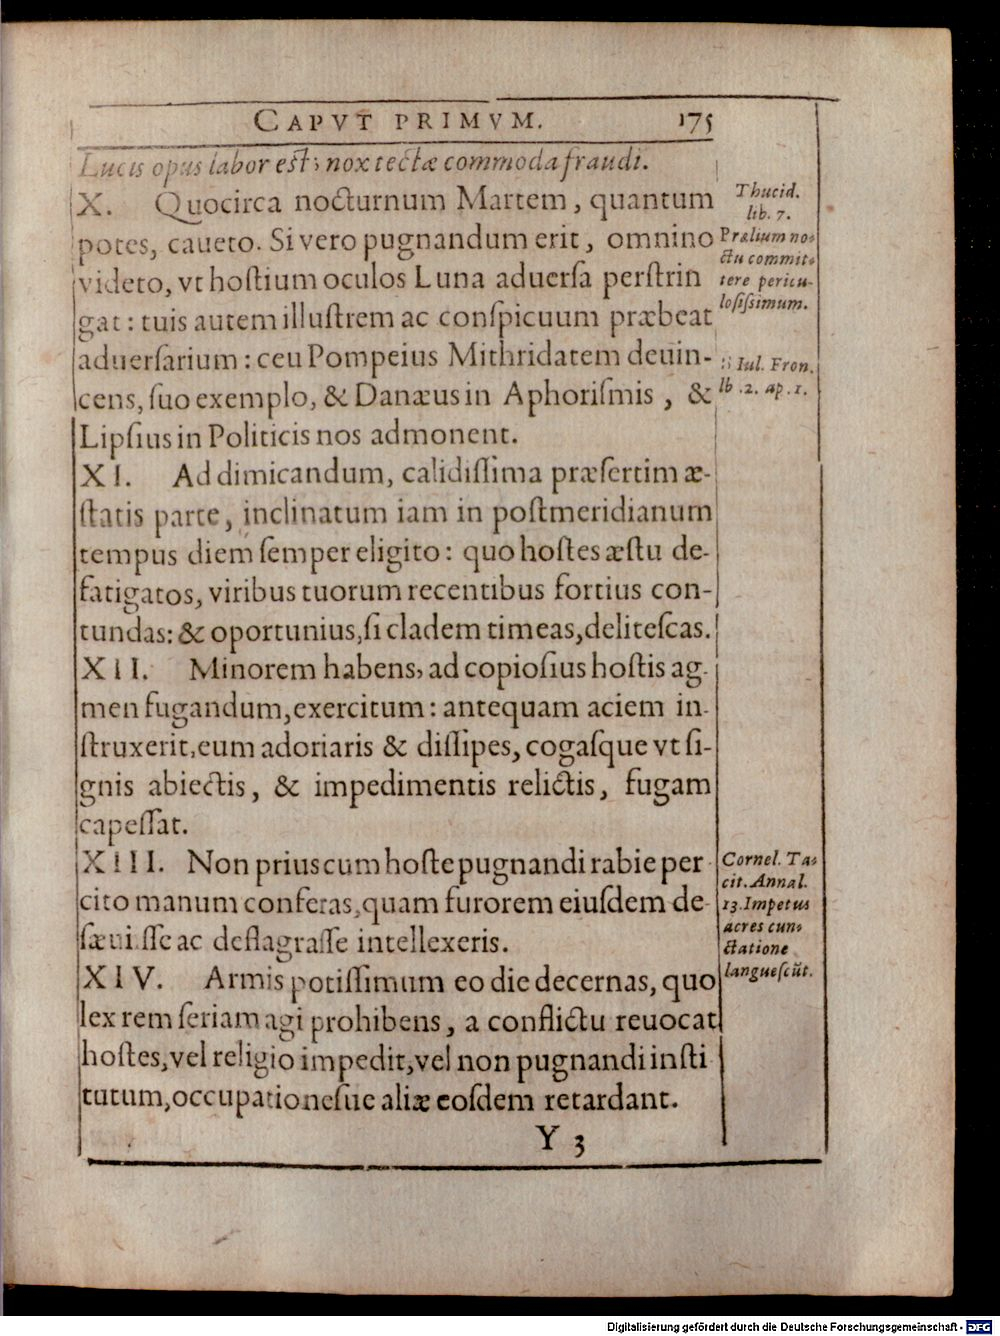 CAPVT PRIMVM. 175
Lucis opus labor est; nox tectæ commoda fraudi.
X. Quocirca nocturnum Martem, quantum
potes, caueto. Si vero pugnandum erit, omnino
videto, vt hoſtium oculos Luna aduerſa perſtrin
gat: tuis autem illuſtrem ac conſpicuum præbeat
aduerſarium: ceu Pompeius Mithridatem deuin-
cens, ſuo exemplo, & Danæus in Aphoriſmis, &
Lipſius in Politicis nos admonent.
XI. Ad dimicandum, calidiſſima præſertim æ-
ſtatis parte, inclinatum iam in poſtmeridianum
tempus diem ſemper eligito: quo hoſtes æſtu de-
fatigatos, viribus tuorum recentibus fortius con-
tundas: & oportunius, ſi cladem timeas, deliteſcas.
XII. Minorem habens, ad copioſius hoſtis ag-
men fugandum, exercitum: antequam aciem in-
ſtruxerit, eum adoriaris & diſſipes, cogaſque vt ſi-
gnis abiectis, & impedimentis relictis, fugam
capeſſat.
XIII. Non prius cum hoſte pugnandi rabie per
cito manum conferas, quam furorem eiuſdem de-
ſæuiſſe ac deflagraſſe intellexeris.
XIV. Armis potiſſimum eo die decernas, quo
lex rem ſeriam agi prohibens, a conflictu reuocat
hoſtes, vel religio impedit, vel non pugnandi inſti
tutum, occupationeſue aliæ eoſdem retardant.
Y 3
Thucid.
lib. 7.
Prælium no-
ctu commit-
tere pericu-
loſiſsimum.
Iul. Fron.
lb .2. ap .1.
Cornel. Ta-
cit. Annal.
13. Impetus
acres cun-
ctatione
langueſcūt.
Digitalisierung gefördert durch die Deutsche Forschungsgemeinschaft - DFG